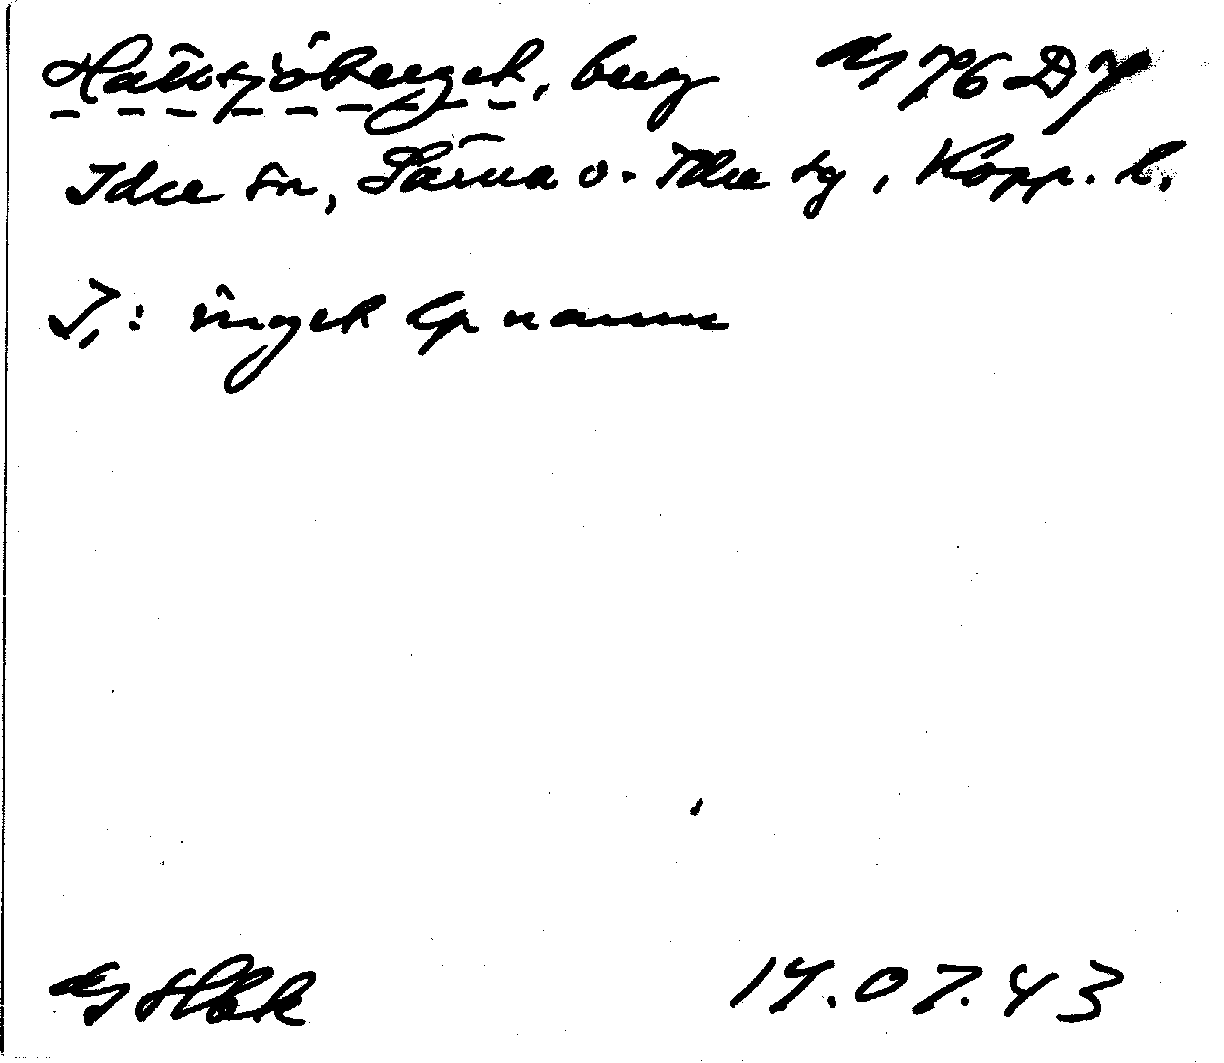 Håttsjöberget, berg Eg 76 D 7
Idre sn, Särna o. Idre tg, Kopp. l.
I: inget lp namn
14.07.43